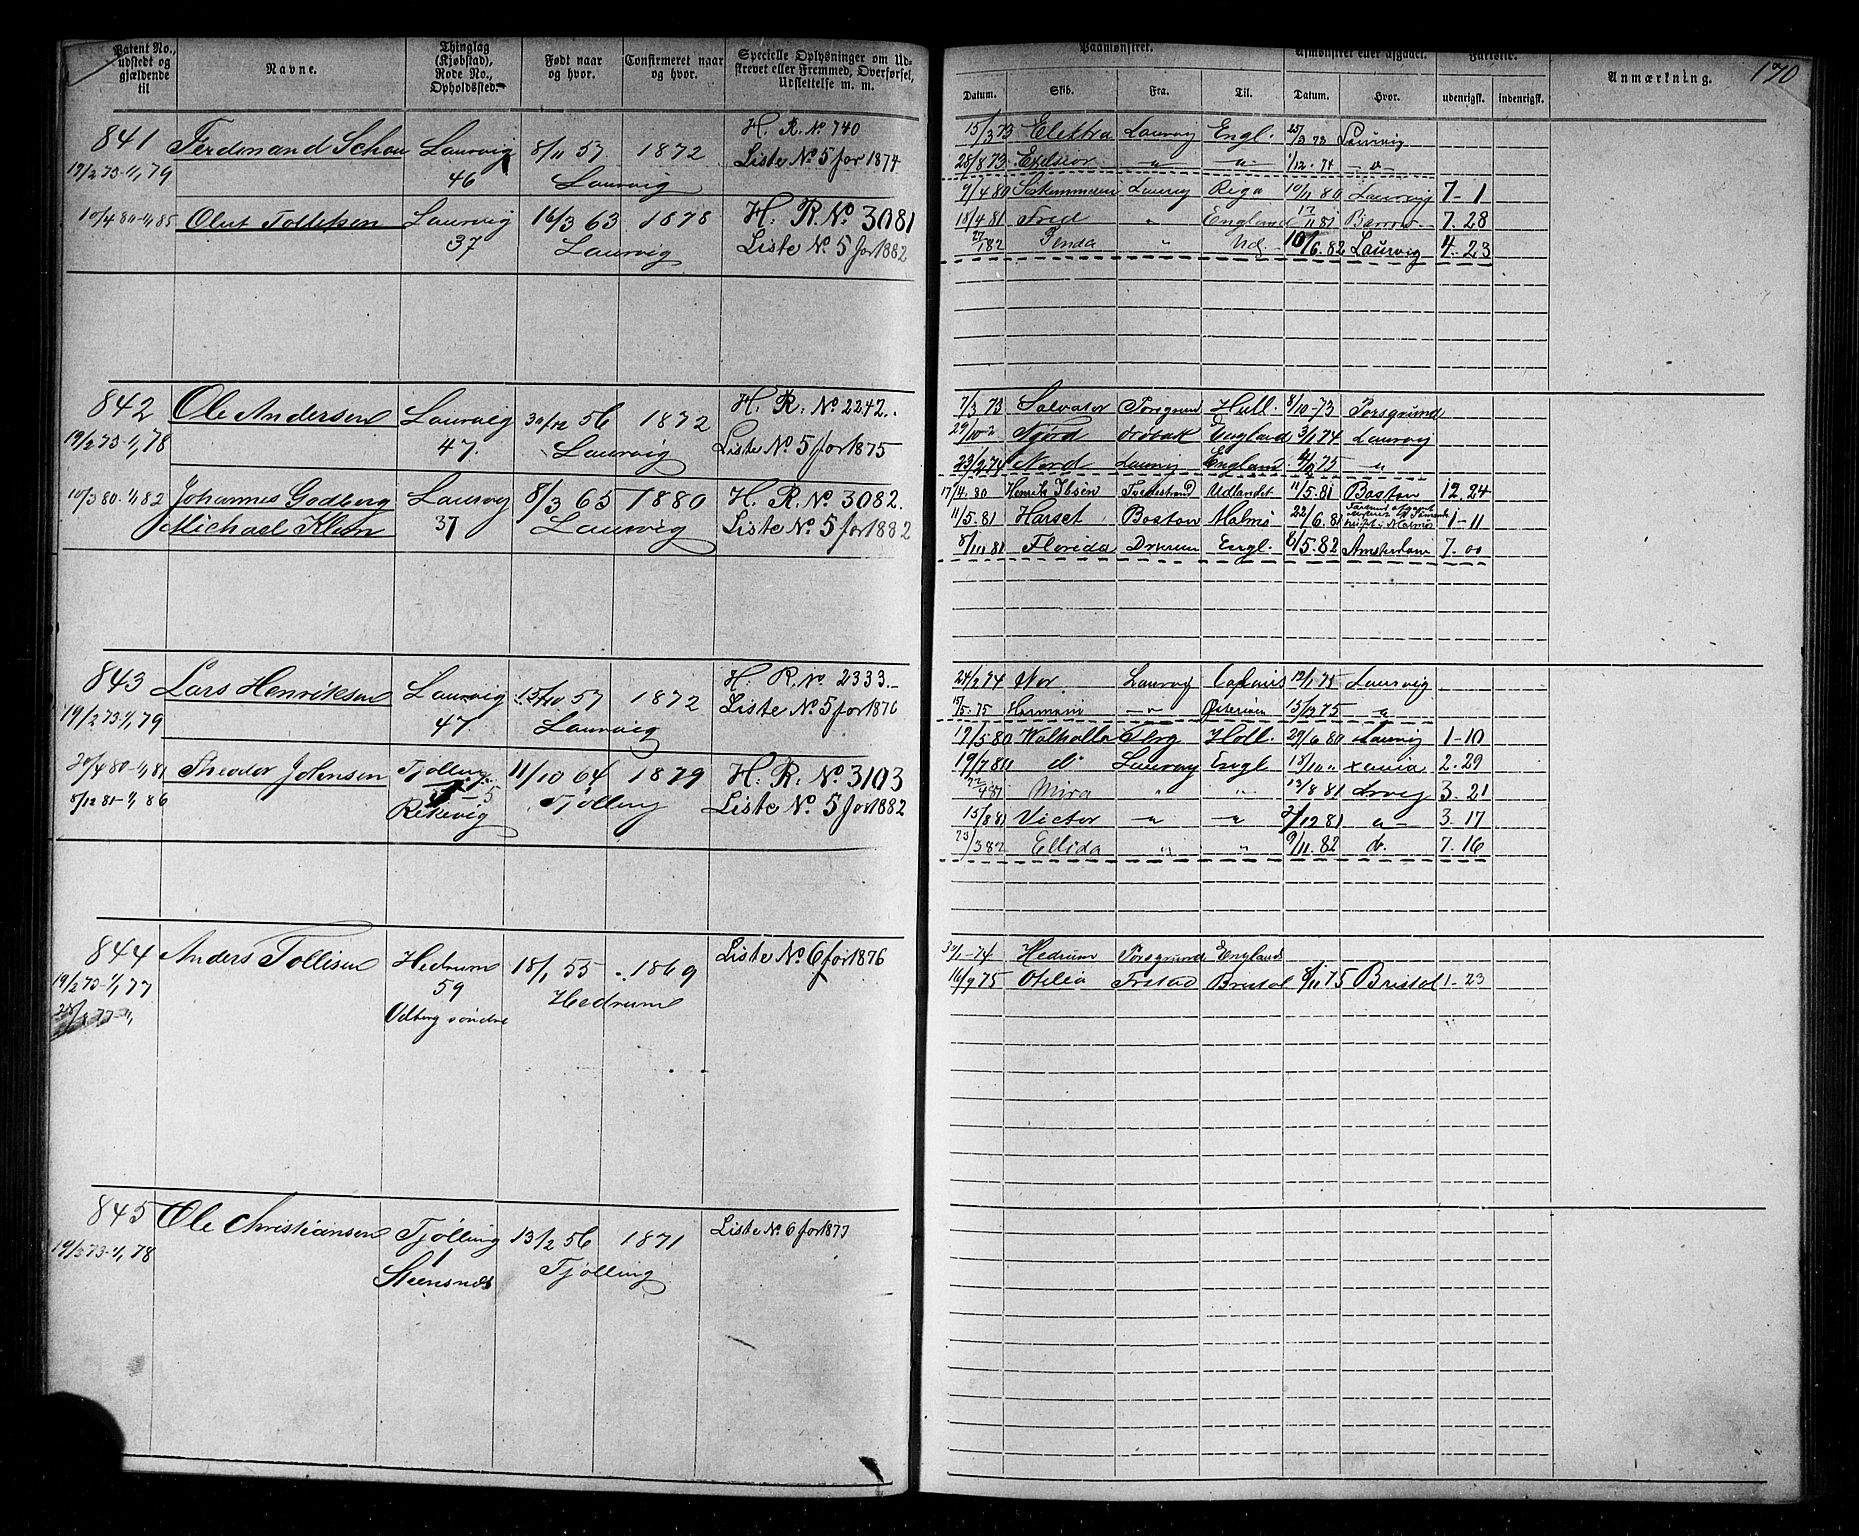 Patent No., udstedt og gjældende til
Navne.
Thinglag (Kjøbstad), Rode No., Opholdssted.
Født naar og hvor.
Confirmeret naar og hvor.
Specielle Oplysninger om Udstrevet eller Fremmed, Overførsel, Udslettelse m. m.
Paamønstret.
Afmønstret eller afgaaet.
Fartstid.
Anmærkning.
170
Datum. Skib. Fra. Til. Datum. Hvor. udenrigsk. indenrigsk.
841 Ferdinand Schou Laurvig 8/11 57 1872 H. R. No 740
19/2 73-1/1 79 46 Laurvig Liste No 5 for 1874
15/3 73 Elektra Laurvig Engl. 25/3 73 Laurvig
28/8 73 Exelsior " " 1/12-74 "
10/4 80-1/1 85 Oluf Tollefsen Laurvig 16/3 63 1878 H. R. No. 3081
37 Laurvig Liste No 5 for 1882
9/4 80 Laurvig Riga 10/11 80 Laurvig 7-1
18/4 81 Fred " England 17/11 81 Barrow 7. 28
27/ 82 " Ud. 10/6. 82 Laurvig 4. 23
842 Ole Andersen Laurvig 30/12 56 1872 H. R. No 2242.
19/2 73-1/1 78 47. Laurvig Liste No 5 for 1875
7/3 73 Salvator Porsgrund Hull. 8/10-73 Porsgrund
29/10-2 Njörd Drøbak England 3/1 74 Laurvig
23/2 74 Nord Laurvig England 75 "
10/3 80-1/1 82 Johannes Godberg Laurvig 8/3 65 1880 H. R. No 3082.
Michael Klem 37 Laurvig Liste No 5 for 1882
17/4. 80 Henrik Ibsen Tvedestrand Udlandet 11/5. 81 Boston 12. 24
11/5. 81 Harset Boston Malmö 22/6. 81 1-11
8/11 81 Florida Engl. 6/5. 82 Amsterdam 7. 00
843 Lars Henriksen Laurvig 15/10 57 1872 H. R. No 2333.
19/2 73-1/1 79 47. Laurvig Liste No 5 for 1876
24/ 74 Nor. Laurvig 12/1 75 Laurvig
15/5. 75 Harmoni " 15/9 75 "
20/4 80-1/1 81 Theodor Johnsen Tjølling 11/10 64 1879 H. R. No. 3103
8/12 81-1/1 86 5 Tjølling Liste No. 5 for 1882
Rekevig
19/5 80 Walhalla Holl. 29/6 80 Laurvig 1-10
19/7 80 do Laurvig Engl 2. 29
81 Mira " " 13/8 81 3-21
15/8 81 Victor " " /12 81 " 3. 17
/3 82 Ellida " " 9/11. 82 do. 7. 16
844 Anders Tollisen Hedrum 18/1 55 1869 Liste No 6 for 1876
19/2 73-1/1 77 59 Hedrum
77-1/1 Odberg söndre
30/1-74 Hedrum Porsgrund England
16/9 75 Otilia Frstad Bristol 8/11 75 Bristol 1-23
845 Ole Christiansen Tjølling 13/2 56 1871 Liste No 6 for 1877
19/2 73-1/1 78 1 Tjølling
Steensnæs